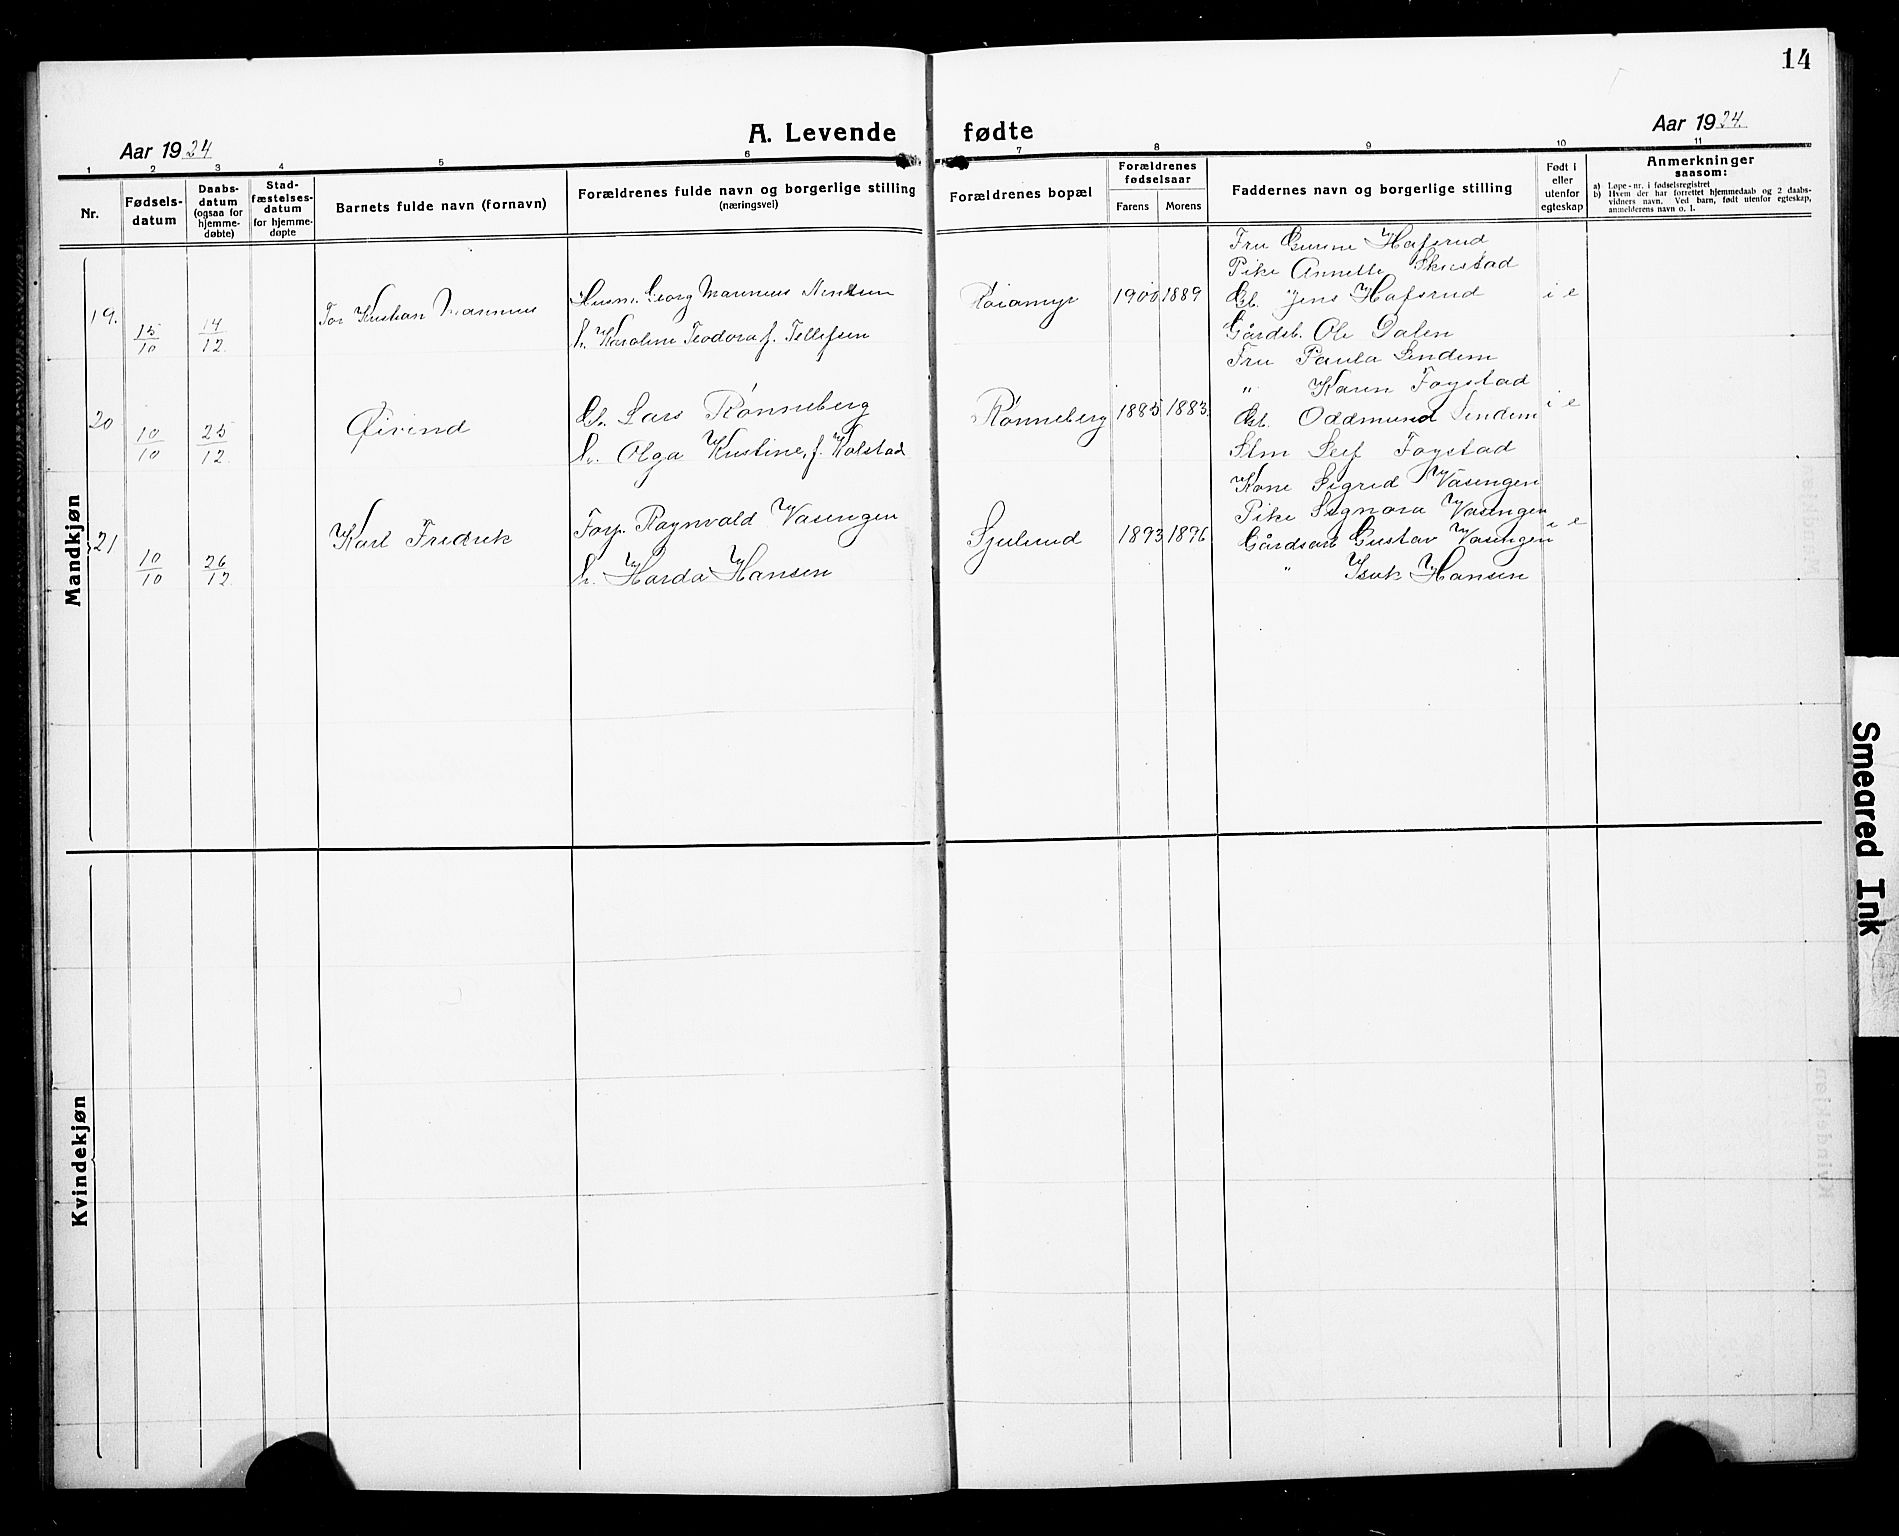 14
A. Levende fødte
Aar 1924
Aar 1924.
1 2 3 4 5 6 7 8 9 10 11
Nr.
Fødsels-
datum
Daabs-
datum
(ogsaa for
hjemme-
døbte)
Stad-
fæstelses-
datum
for hjemme-
døpte
Barnets fulde navn (fornavn)
Forældrenes fulde navn og borgerlige stilling
(næringsvei)
Forældrenes bopæl
Forældrenes
fødselsaar
Farens Morens
Faddernes navn og borgerlige stilling
Født i
eller
utenfor
egteskap
Anmerkninger
saasom:
a) Løpe-nr. i fødselsregistret
b) Hvem der har forrettet hjemmedaab og 2 daabs-
vidners navn. Ved barn, født utenfor egteskap,
anmelderens navn o. l.
Mandkjøn
19.
15/10
14/12.
Tor Kristian Marinus
Husm. Georg Marinius
h. Karoline Teodora f. Tellefsen
1900 1889
Fru Gunne Hafsrud
Pike Annette Skustad
Gb. Jens Hafsrud
Gårdsb. Ole Dalen
i e
20
10/10
25/12.
Øivind
G. Lars Rønneberg
h. Olga Kristine, f. Kolstad
Rønneberg
1885 1883.
Fru Paula Lindem
" Karen Fogstad
Gb. Oddmund Lindem
Stm Leif Fogstad
i e
21
10/10
26/12
Karl Fredrik
Forp. Ragnvald Vasengen
h. Harda Hansen
Sjulund
1893 1896
Kone Sigrid Vasengen
Pike Signora Vasengen
Gårdsarb Gustav Vasengen
" Isak Hansen
i e
Kvindekjøn
Smeared Ink